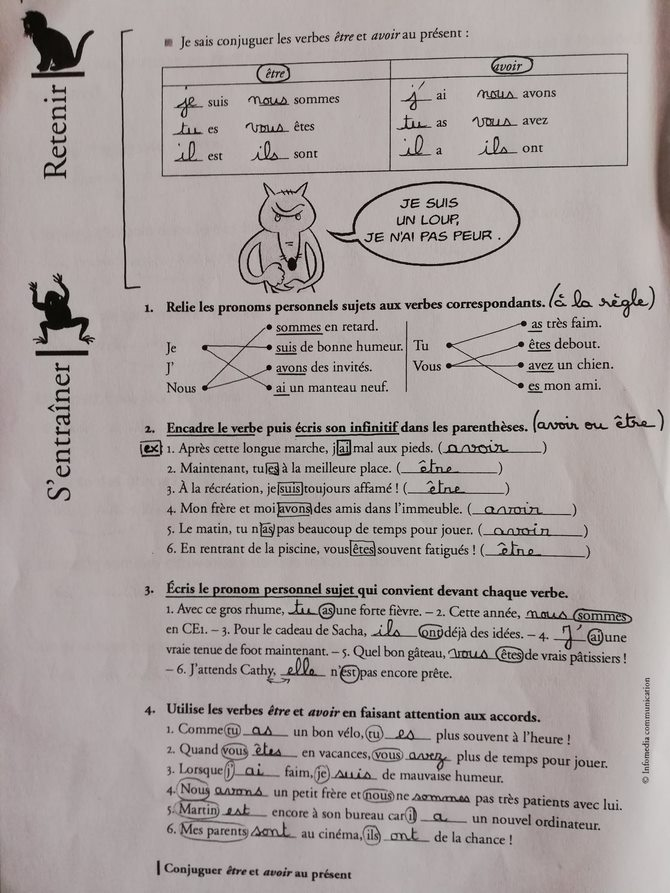 Retenir
■ Je sais conjuguer les verbes être et avoir au présent :
être avoir
je suis nous sommes j' ai nous avons
tu es vous êtes tu as vous avez
il est ils sont il a ils ont
JE SUIS
UN LOUP,
JE N'AI PAS PEUR.
S'entraîner
1. Relie les pronoms personnels sujets aux verbes correspondants. (à la règle)
sommes en retard. as très faim.
Je suis de bonne humeur. Tu êtes debout.
J' avons des invités. Vous avez un chien.
Nous ai un manteau neuf. es mon ami.
2. Encadre le verbe puis écris son infinitif dans les parenthèses. (avoir ou être)
ex 1. Après cette longue marche, j'ai mal aux pieds. (avoir)
2. Maintenant, tu es à la meilleure place. (être)
3. À la récréation, je suis toujours affamé ! (être)
4. Mon frère et moi avons des amis dans l'immeuble. (avoir)
5. Le matin, tu n'as pas beaucoup de temps pour jouer. (avoir)
6. En rentrant de la piscine, vous êtes souvent fatigués ! (être)
3. Écris le pronom personnel sujet qui convient devant chaque verbe.
1. Avec ce gros rhume, tu as une forte fièvre. – 2. Cette année, nous sommes
en CE1. – 3. Pour le cadeau de Sacha, ils ont déjà des idées. – 4. J' ai une
vraie tenue de foot maintenant. – 5. Quel bon gâteau, vous êtes de vrais pâtissiers !
– 6. J'attends Cathy, elle n'est pas encore prête.
4. Utilise les verbes être et avoir en faisant attention aux accords.
1. Comme tu as un bon vélo, tu es plus souvent à l'heure !
2. Quand vous êtes en vacances, vous avez plus de temps pour jouer.
3. Lorsque j' ai faim, je suis de mauvaise humeur.
4. Nous avons un petit frère et nous ne sommes pas très patients avec lui.
5. Martin est encore à son bureau car il a un nouvel ordinateur.
6. Mes parents sont au cinéma, ils ont de la chance !
Conjuguer être et avoir au présent
© Infomedia communication